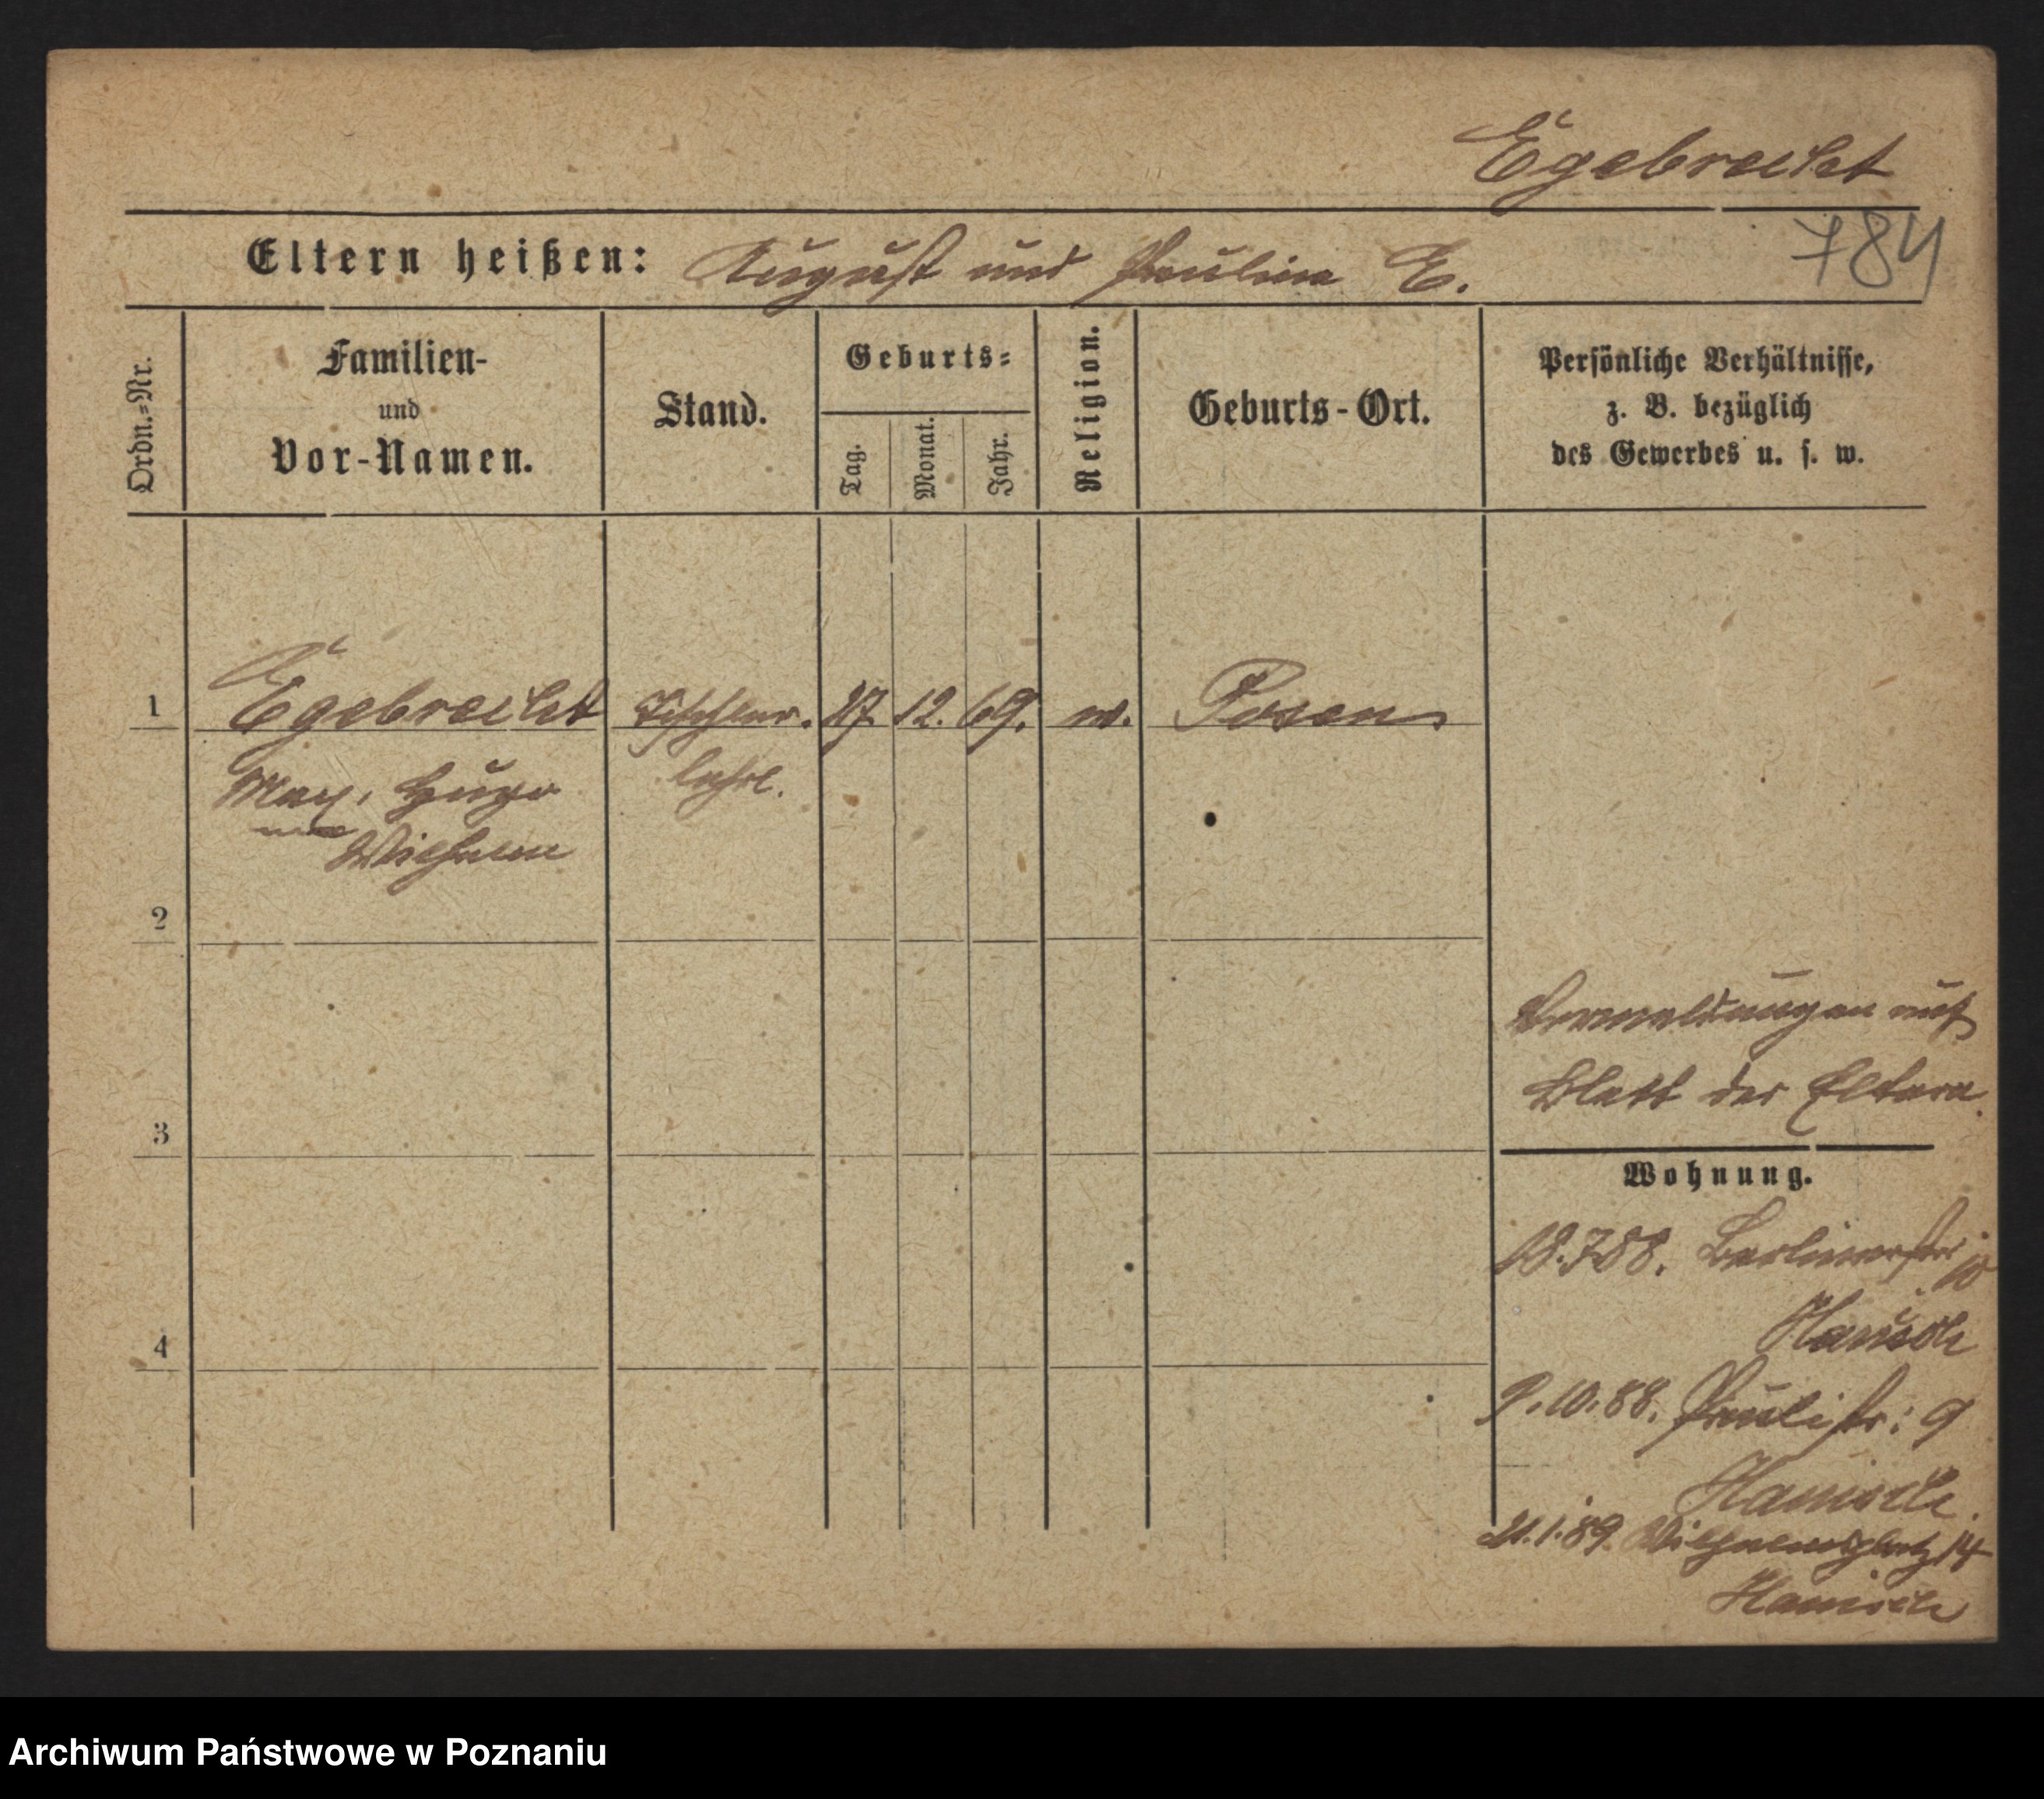 Egebrecht
784
Eltern heißen: August und Pauline E.
Ordn.-Nr.
Familien-
und
Vor-Namen.
Stand.
Geburts-
Tag.
Monat.
Jahr.
Religion.
Geburts-Ort.
Persönliche Verhältnisse,
z. B. bezüglich
des Gewerbes u. s. w.
1 Egebrecht Tischler. 27 12. 69. Posen
Max, Hugo lehrl.
Wilhelm
2
3
4
auf
Blatt der Eltern.
Wohnung.
18.7.88. Berlinerstr 10
Hanisch
9.10.88. Paulistr: 9
Hanisch
21.1.89. Wilhelmsplatz 14
Hanisch
Archiwum Państwowe w Poznaniu